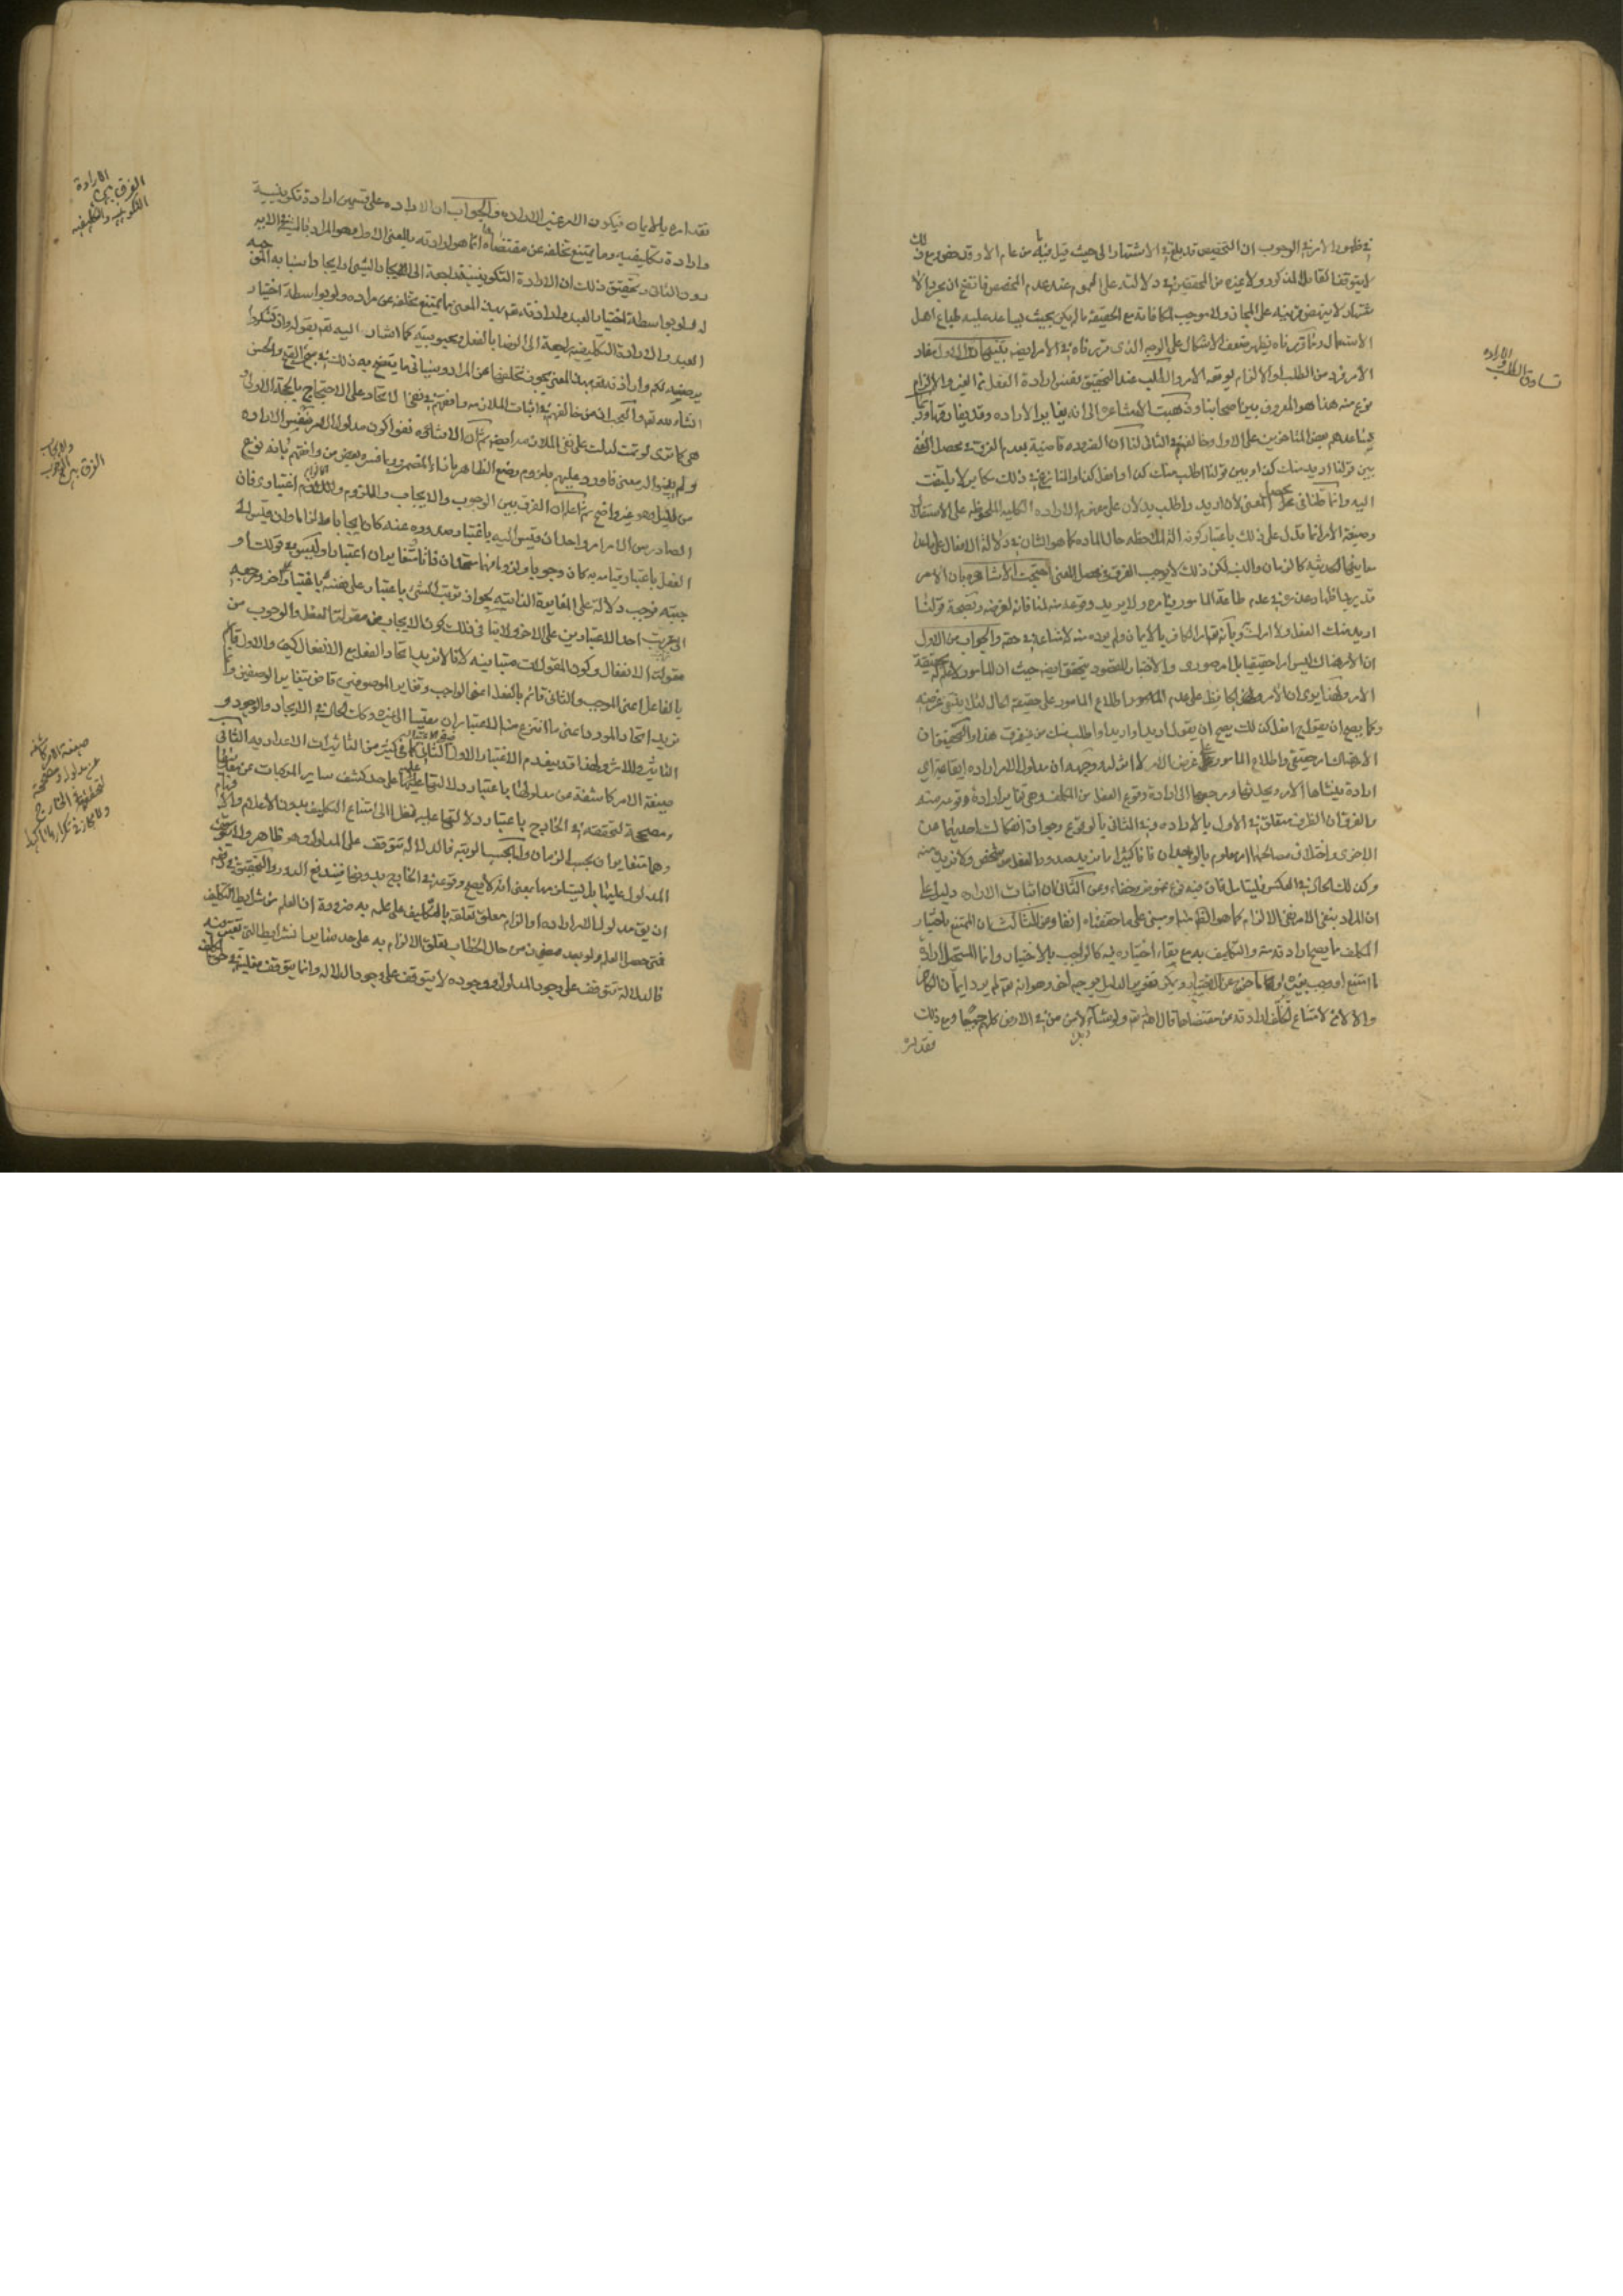 في ظهور الامر في الوجوب ان التخصيص قد بلغ في الاشتهار الى حيث قيل فيه ما من عام الا وقد خص ومع ذلك
لا يتوقف القائل المذكور ولا غيره من المحققين في دلالته على العموم عند عدم المخصص فاتضح ان مجرد الا
شتهار لا ينهض قرينة على المجاز ولا موجب المكافاته مع الحقيقة ما لم يكن بحيث يساعد عليه طباع اهل
الاستعمال وبما قررناه يظهر ضعف الاشكال على الوجه الذى قررناه في الأمر ايضا
الأمر فرد من الطلب او الالزام لوقعه الامر والطلب عند التحقيق نفس ارادة الفعل من الغير والالزام
نوع منه هذا هو المعروف بين اصحابنا وذهبت الأشاعرة الى انه يغاير الأراده وقد يفارقها وقد
يساعدهم بعض المتاخرين على الاول وخالفهم في الثانى لنا ان الضروره قاضية بعدم الفرق في محصل المعنى
بين قولنا اريد منك كذا وبين قولنا اطلب منك كذا او افعل كذا والمنازع في ذلك مكابر لا يلتفت
اليه وانما قلنا في محصل المعنى لأن اريد واطلب يدلان على مفهوم الاراده الكليه الملحوظه على الاستقلال
وصيغة الأمر انما تدل على ذلك باعتبار كونه الة لملاحظه حال الماده كما هو الشان في دلالة الافعال على
معاينها الحدثيه كالزمان والنسب لكن ذلك لا يوجب الفرق في محصل المعنى احتجت الأشاعره بان الامر
قد يريد اظهار عذره في عدم طاعة المامور فيامره ولا يريد وقوعه منه لمنافاته لغرضه وبصحة قولنا
اريد منك الفعل ولا امرك وبأنه تعالى امر الكافر بالأيمان ولم يرده منه لامتناعه في حقه والجواب عن الاول
ان الأمر هناك ليس امرا حقيقيا بل امر صورى والاختبار المقصود يتحقق ايضا حيث ان المامور لا يعلم حقيقة
الأمر ولهذا يرى ان الآمر يحافظ على عدم اطلاع المامور على حقيقة الحال لئلا ينتفى غرضه
وكما يصح ان يقول افعل كذلك يصح ان يقول اريد او اطلب منك من غير فرق هذا والتحقيق ان
الأمر هناك امر حقيقى واطلاع المامور على غرض الامر لا اثر له وجهه ان مدلول الامر اراده ايقاعية اى
ارادة ينشاها الآمر ويحدثها ومرجعها الى ارادة وقوع الفعل من المكلف وهى تغاير ارادة وقوعه منه
والفرق ان الظرف متعلق في الأول بالاراده وفي الثانى بالوقوع وجواز انفكاك احديهما عن
الاخرى واختلاف مصالحها امر معلوم بالوجدان فانا كثيرا ما نريد صدور الفعل من شخص ولا نريده منه
وكذلك الحال في العكس فليتامل فان فيه نوع غموض وخفاء وعن الثانى ان اثبات الاراده دليل على
ان المراد بنفى الامر نفى الالزام كما هو الظاهر منه او مبنى على ما حققناه آنفا وعن الثالث ان الممتنع باختيار
المكلف مما يصح ارادته منه والتكليف به مع بقاء اختياره له كالواجب بالاختيار وانما المستحيل ارادة
ما امتنع او وجب بغيره لخروجه عن الاختيار ويمكن تقرير الدليل بوجه آخر وهو انه تعالى لم يرد ايمان الكافر
والا لآمن لامتناع تخلف ارادته عن مقتضاها قال الله تعالى ولو شاء ربك لآمن من في الارض كلهم جميعا ومع ذلك
فقد امر
تساوق الطلب والاراده
فقد امره بالايمان فيكون الامر غير الاراده والجواب ان الاراده على قسمين ارادة تكوينية
وارادة تكليفيه وما يمتنع تخلفه عن مقتضاها انما هو ارادته بالمعنى الاول وهو المراد بالمشية في الايه
دون الثانى وتحقيق ذلك ان الارادة التكوينية راجعة الى ايجاد الشئ او ايجاد اسبابه الموجبه
له ولو بواسطة اختيار العبد وارادته تعالى بهذا المعنى مما يمتنع تخلفه عن مراده ولو بواسطة اختيار
العبد والارادة التكليفية راجعة الى الرضا بالفعل ومحبوبيته كما اشار اليه تعالى بقوله وان تشكروا
يرضه لكم وارادته تعالى بهذا المعنى يجوز تخلفها عن المراد وسياتى ما يتضح به ذلك في مبحث القبح والحسن
انشاء الله تعالى والعجب ان من خالفهم في اثبات الملازمه وافقهم في نفى الاتحاد على الاحتجاج بالحجة الاولى
هى كما ترى لو تمت لدلت على نفى الملازمه ايضا ثم ان الاشاعره نفوا كون مدلول الامر نفس الاراده
ولم يبينوا له معنى فاورد عليهم بلزوم وضع الظاهر بازاء المضمر وربما فسره بعض من وافقهم بانه نوع
من الميل وهو غير واضح ثم اعلم ان الفرق بين الوجوب والايجاب واللزوم والالزام اعتبارى فان
الصادر من الامر امر واحد ان قيس اليه باعتبار صدوره عنه كان ايجابا والزاما وان قيس الى
الفعل باعتبار قيامه به كان وجوبا ولزوما فهما متحدان ذاتا متغايران اعتبارا وليس في قولك او
جبته فوجب دلالة على المغايرة الذاتيه لجواز ترتب الشئ باعتبار على نفسه باعتبار آخر ومرجعه
الى ترتب احد الاعتبارين على الاخر ولا ينافى ذلك كون الايجاب من مقولة الفعل والوجوب من
مقولة الانفعال وكون المقولات متباينه لأنا لا نريد اتحاد الفعل مع الانفعال كيف والاول قائم
بالفاعل اعنى الموجب والثانى قائم بالفعل اعنى الواجب وتغاير الموصوفين قاض بتغاير الوصفين وانما
نريد اتحاد المورد اعنى ما انتزع منه الاعتباران مقيسا الى غيره وكذلك الحال في الايجاد والوجود و
التاثير والاثر ولهذا قد يقدم الاعتبار الاول على الثانى كما في كثير من التاثيرات الاعداديه الثانى
صيغة الامر كاشفة عن مدلولها باعتبار دلالتها عليه على حد كشف ساير المركبات عن معانيها
ومصححة لتحققه في الخارج باعتبار دلالتها عليه نظرا الى امتناع التكليف بدون الاعلام والافهام
وهما متغايران بحسب الزمان والرتبه فالدلالة تتوقف على المدلول وهو ظاهر
المدلول عليها بل يستلزمها بمعنى انه لا يصح وقوعه في الخارج بدونها فيندفع الدور والتحقيق في دفعه
ان يقال مدلول الامر اراده او الزام معلق تعلقه بالمكلف على علمه به ضرورة ان العلم من شرايط التكليف
فمتى حصل العلم ولو بعد حين من حال الخطاب تعلق الالزام به على حد ساير الشرايط التى تعتبر فيه
فالدلالة تتوقف على وجود المدلول ووجوده لا يتوقف على وجود الدلالة وانما يتوقف فعليته في حق المكلف
الفرق بين الارادة
التكوينيه والتكليفيه
الفرق بين الوجوب
والايجاب
صيغة الامر كاشفه
عن مدلوله ومصححة
لتحققه في الخارج